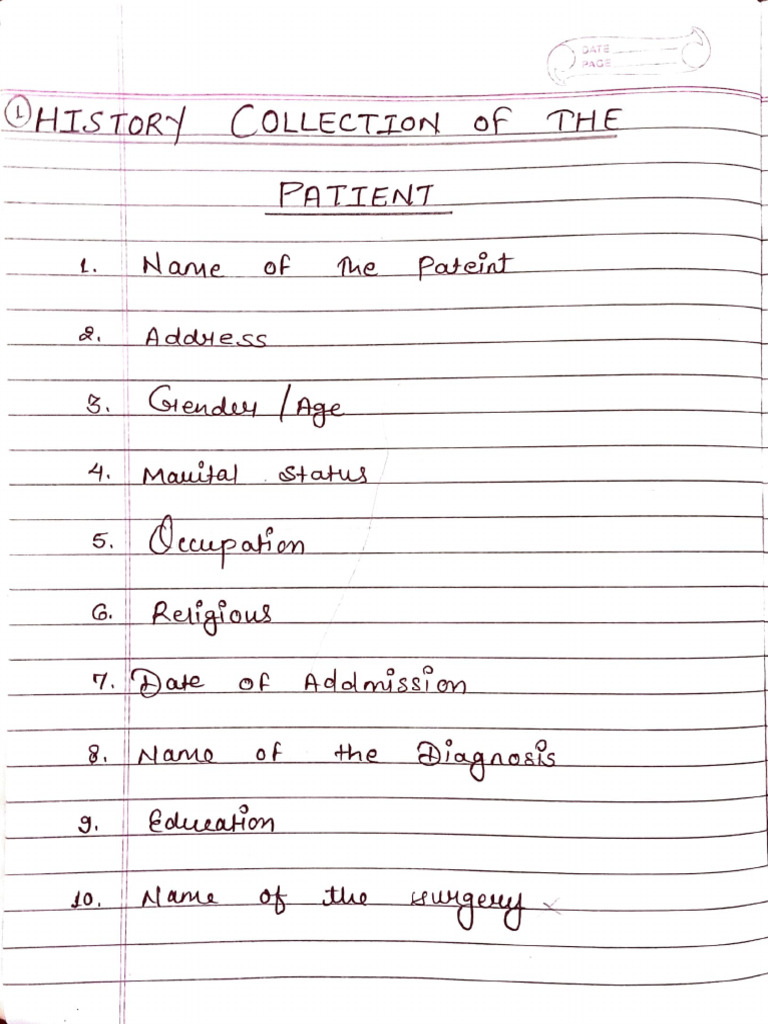 DATE
PAGE
① HISTORY COLLECTION OF THE
PATIENT
1. Name of the Pateint
2. Address
3. Gender / Age
4. Marital Status
5. Occupation
6. Religious
7. Date of Addmission
8. Name of the Diagnosis
9. Education
10. Name of the surgery